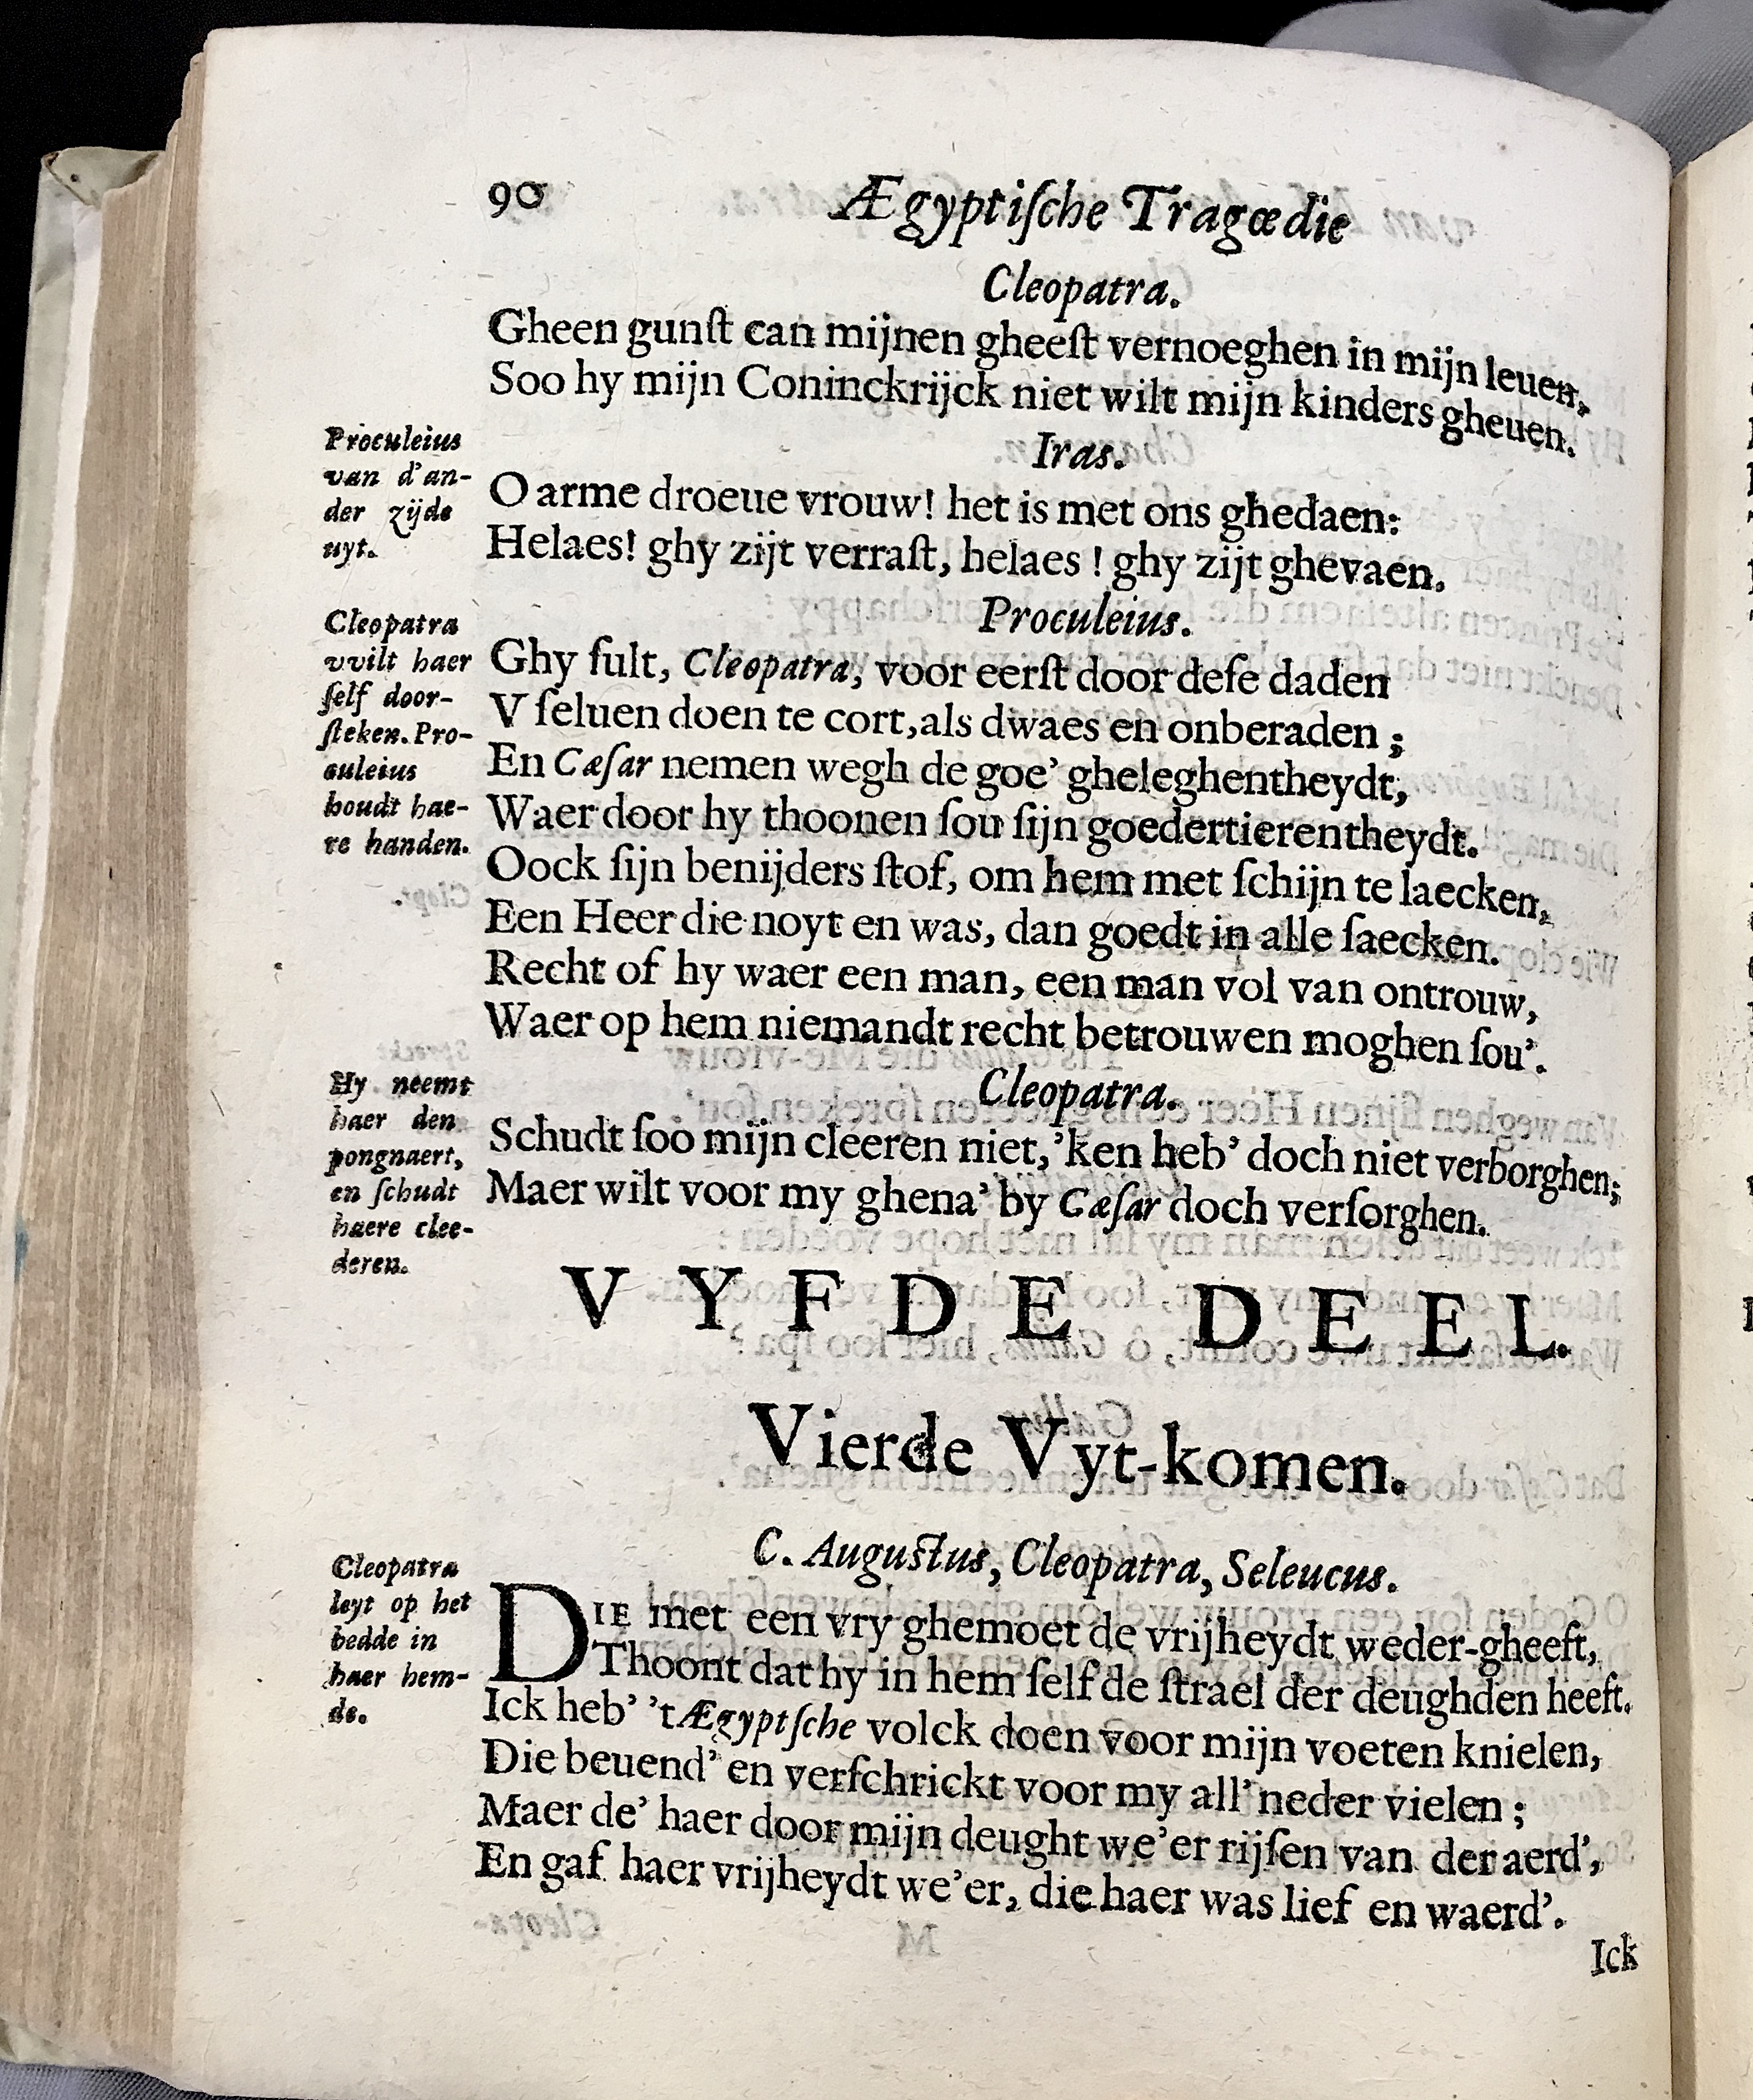 90
Ægyptiſche Tragœdie
Cleopatra.
Gheen gunſt can mijnen gheeſt vernoeghen in mijn leuen,
Soo hy mijn Coninckrijck niet wilt mijn kinders gheuen.
Proculeius
van d'an-
der zijde
uyt.
Iras.
O arme droeue vrouw! het is met ons ghedaen:
Helaes! ghy zijt verraſt, helaes! ghy zijt ghevaen.
Cleopatra
vvilt haer
ſelf door-
ſteken. Pro-
culeius
houdt hae-
re handen.
Proculeius.
Ghy ſult, Cleopatra, voor eerſt door deſe daden
V ſeluen doen te cort, als dwaes en onberaden;
En Cæſar nemen wegh de goe' gheleghentheydt,
Waer door hy thoonen ſou ſijn goedertierentheydt.
Oock ſijn benijders ſtof, om hem met ſchijn te laecken,
Een Heer die noyt en was, dan goedt in alle ſaecken.
Recht of hy waer een man, een man vol van ontrouw,
Waer op hem niemandt recht betrouwen moghen ſou'.
Hy neemt
haer den
pongnaert,
en ſchudt
haere clee-
deren.
Cleopatra.
Schudt ſoo mijn cleeren niet, 'ken heb' doch niet verborghen;
Maer wilt voor my ghena' by Cæſar doch verſorghen.
VYFDE DEEL.
Vierde Vyt-komen.
C. Auguſtus, Cleopatra, Seleucus.
Cleopatra
leyt op het
bedde in
haer hem-
de.
DIE met een vry ghemoet de vrijheydt weder-gheeft,
Thoont dat hy in hem ſelf de ſtrael der deughden heeft.
Ick heb' 't Ægyptſche volck doen voor mijn voeten knielen,
Die beuend' en verſchrickt voor my all' neder vielen;
Maer de' haer door mijn deught we'er rijſen van der aerd',
En gaf haer vrijheydt we'er, die haer was lief en waerd'.
Ick